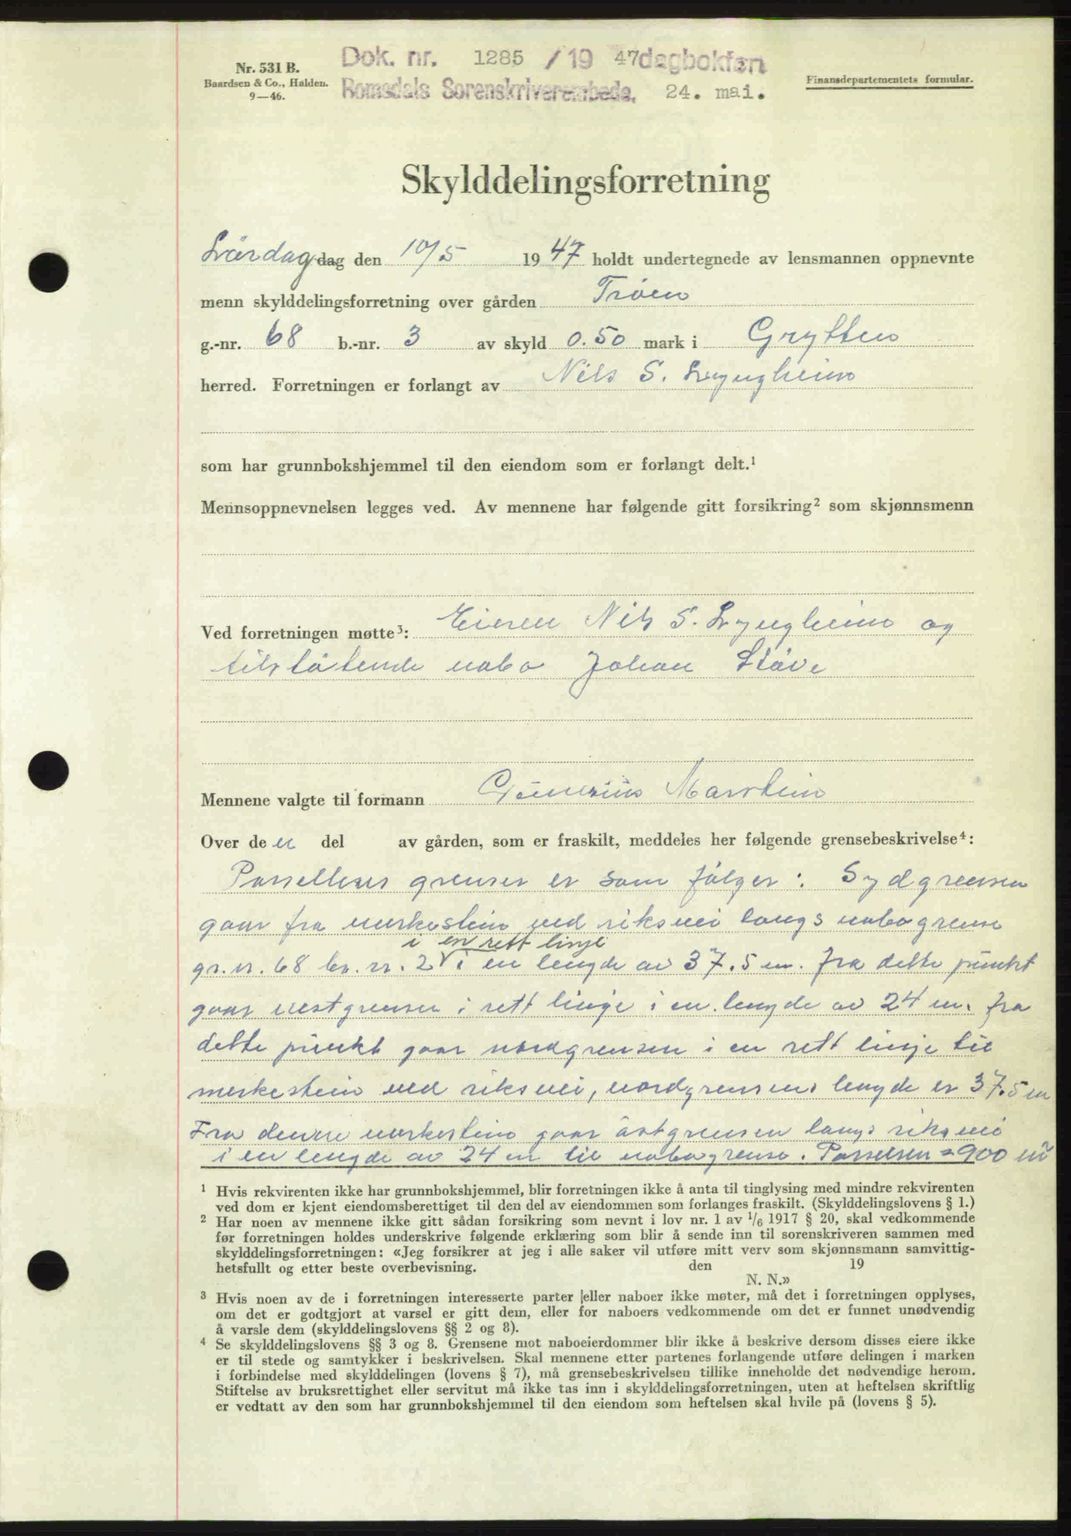 Nr. 531 B.
Baardsen & Co., Halden.
9—46.
Dok. nr. 1285 / 19 47 dagbokføn
Romsdals Sorenskriverembede, 24. mai.
Finansdepartementets formular.
Skylddelingsforretning
Lørdag dag den 10/5 1947 holdt undertegnede av lensmannen oppnevnte
menn skylddelingsforretning over gården Trøen
g.-nr. 68 b.-nr. 3 av skyld 0.50 mark i Grytten
herred. Forretningen er forlangt av Nils S. Lyngheim
som har grunnbokshjemmel til den eiendom som er forlangt delt.¹
Mennsoppnevnelsen legges ved. Av mennene har følgende gitt forsikring² som skjønnsmenn
Ved forretningen møtte³: Eieren Nils S. Lyngheim og
tilstøtende nabo Johan Støve
Mennene valgte til formann Gunerius Marstein
Over de n del av gården, som er fraskilt, meddeles her følgende grensebeskrivelse⁴:
Parsellens grenser er som følger: Sydgrensen
gaar fra merkestein ved riksvei langs nabogrense
i en rett linje
gr. nr. 68 br. nr. 2 i en lengde av 37.5 m. fra dette punkt
gaar vestgrensen i rett linje i en lengde av 24 m. fra
dette punkt gaar nordgrensen i en rett linje til
merkestein ved riksvei, nordgrensens lengde er 37.5 m
Fra denne merkestein gaar østgrensen langs riksvei
i en lengde av 24 m til nabogrense. Parsellen = 900 m²
¹ Hvis rekvirenten ikke har grunnbokshjemmel, blir forretningen ikke å anta til tinglysing med mindre rekvirenten
ved dom er kjent eiendomsberettiget til den del av eiendommen som forlanges fraskilt. (Skylddelingslovens § 1.)
² Har noen av mennene ikke gitt sådan forsikring som nevnt i lov nr. 1 av 1/6 1917 § 20, skal vedkommende
før forretningen holdes underskrive følgende erklæring som blir å sende inn til sorenskriveren sammen med
skylddelingsforretningen: «Jeg forsikrer at jeg i alle saker vil utføre mitt verv som skjønnsmann samvittig-
hetsfullt og etter beste overbevisning. den 19
N. N.»
³ Hvis noen av de i forretningen interesserte parter eller naboer ikke møter, må det i forretningen opplyses,
om det er godtgjort at varsel er gitt dem, eller for naboers vedkommende om det er funnet unødvendig
å varsle dem (skylddelingslovens §§ 2 og 8).
⁴ Se skylddelingslovens §§ 3 og 8. Grensene mot naboeierdommer blir ikke å beskrive dersom disses eiere ikke
er til stede og samtykker i beskrivelsen. Skal mennene etter partenes forlangende utføre delingen i marken
i forbindelse med skylddelingen (lovens § 7), må grensebeskrivelsen tillike inneholde det nødvendige herom.
Stiftelse av bruksrettighet eller servitut må ikke tas inn i skylddelingsforretningen, uten at heftelsen skriftlig
er vedtatt av den som har grunnbokshjemmel til den eiendom som heftelsen skal hvile på (lovens § 5).